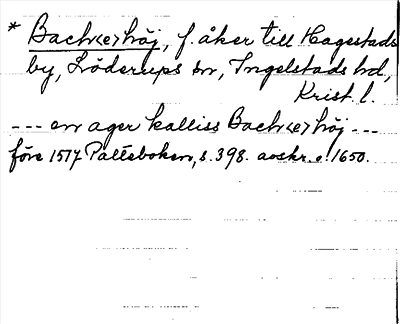 * Bach<e>höj, f. åker till Hagestads
by, Löderups sn, Ingelstads hd,
Krist. l.
--- en ager kalliss Bach<e>höj ---
före 1517 Palteboken, s. 398. avskr. c. 1650.